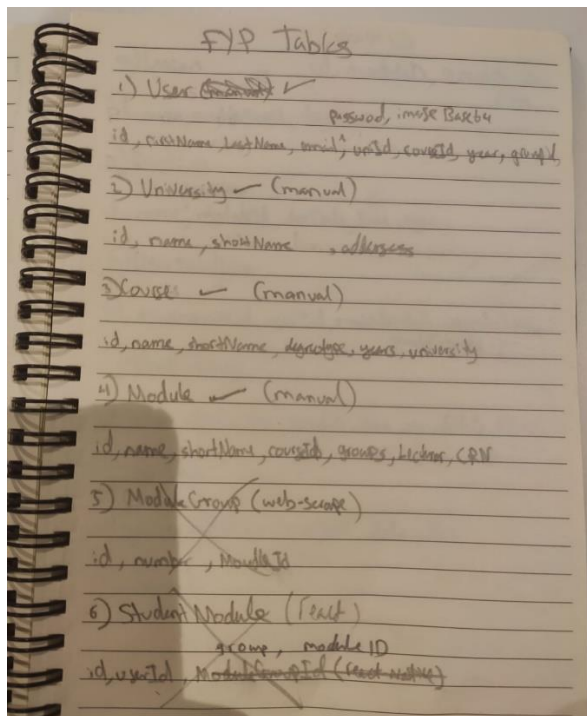 FYP Tables
1) User ✓
password, imageBase64
id, firstName, LastName, email^, uniId, courseId, year,
2) University ✓ (manual)
id, name, shortName , addersess
3) Course ✓ (manual)
id, name, shortName, years, university
4) Module ✓ (manual)
id, name, shortName, courseId, groups, Lecturer, CRN
5) ModuleGroup (web-scrape)
id, number, ModuleId
6) StudentModule (react)
group, module ID
id, userId, ModuleGroupId (react Native)